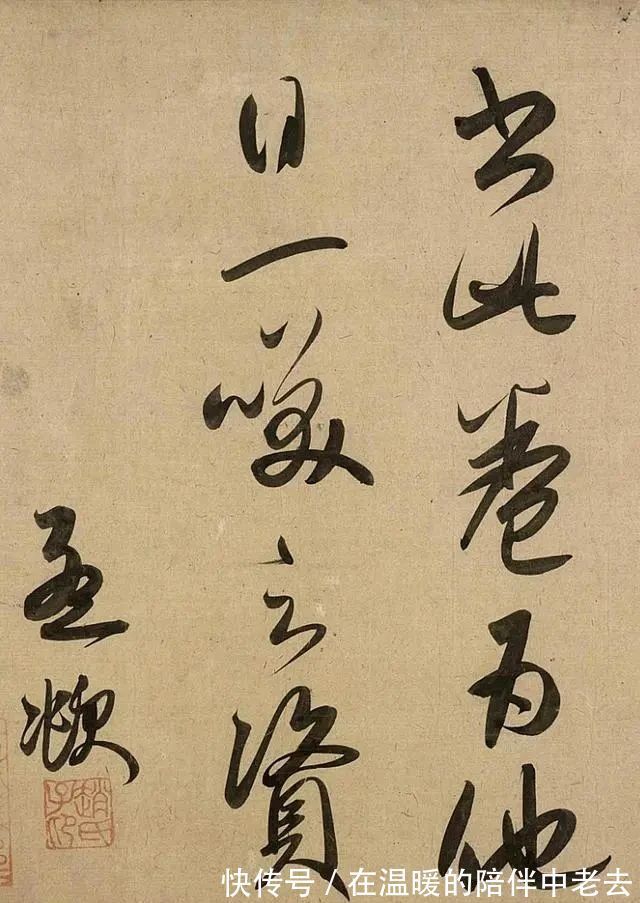 書此卷為他
日一笑之資
孟頫
趙氏子昂
快传号/在温暖的陪伴中老去